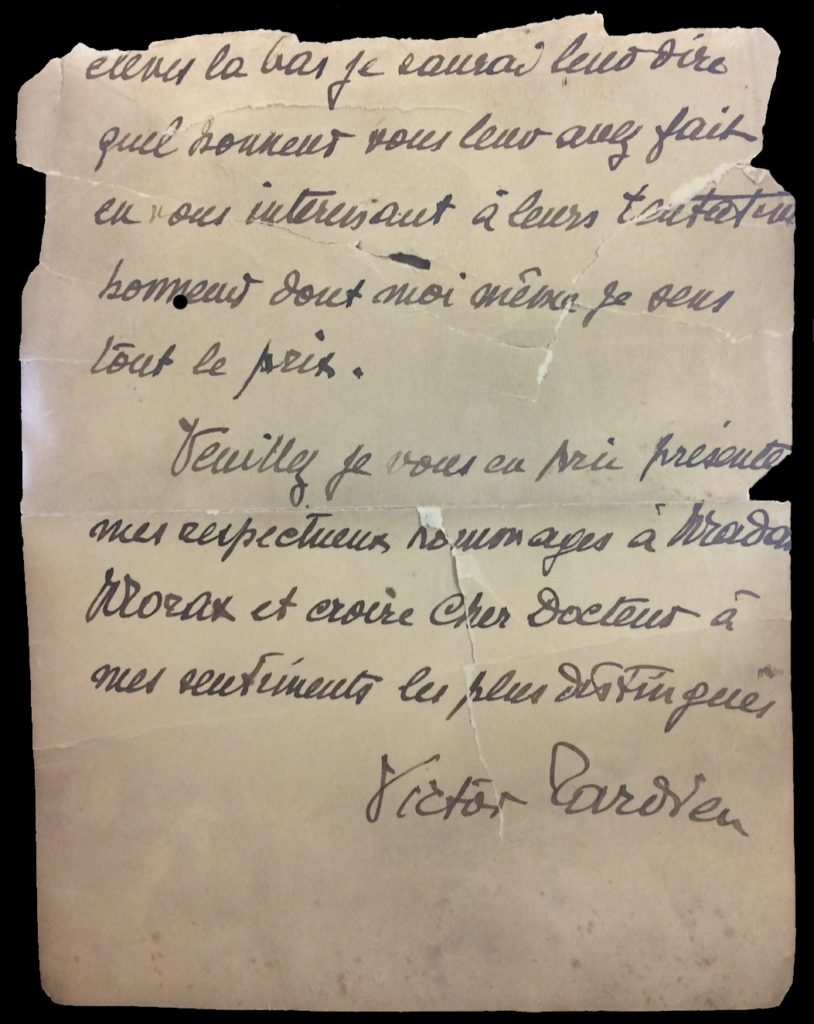 élèves la bas je saurai leur dire
quel honneur vous leur avez fait
en vous interessant à leurs tentatives
honneur dont moi même je sens
tout le prix.
Veuillez je vous en prie présente
mes respectueux hommages à Mada
Morax et croire Cher Docteur à
mes sentiments les plus distingués
Victor Tardieu